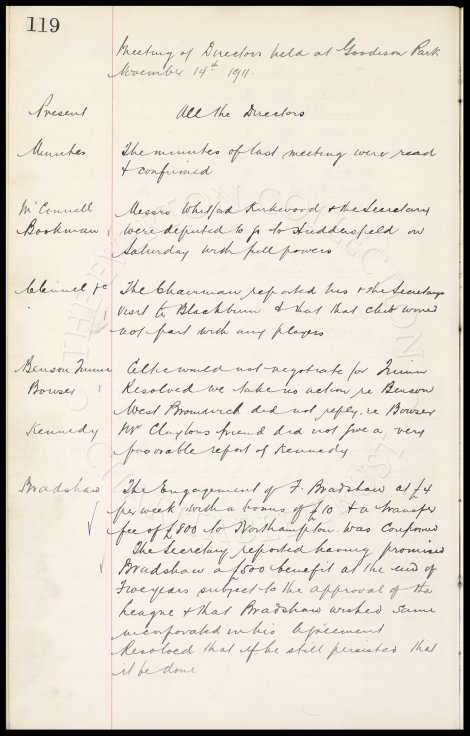 119
Meeting of Directors held at Goodison Park
November 14th 1911.
Present All the Directors
Minutes The minutes of last meeting were read
& confirmed
McConnell Messrs Whitford Kirkwood & the Secretary
Bookman were deputed to go to Huddersfeld on
Saturday with full powers
Clennel &c The Chairman reported his & the Secretarys
visit to Blackburn & that that club would
not part with any players
Benson Quinn Celtic would not negotiate for Quinn
Bowser Resolved we take no action re Benson
West Bromwich did not reply re Bowser
Kennedy Mr Claytons friend did not give a very
favorable report of Kennedy
Bradshaw The Engagement of F. Bradshaw at £4
per week with a bonus of £10 & a transfer
fee of £800 to Northampton was confirmed
The Secretary reported having promised
Bradshaw a £500 benefit at the end of
Five years subject to the approval of the
League & that Bradshaw wished same
incorporated in his Agreement
Resolved that if he still persisted that
it be done
THE EVERTON COLLECTION